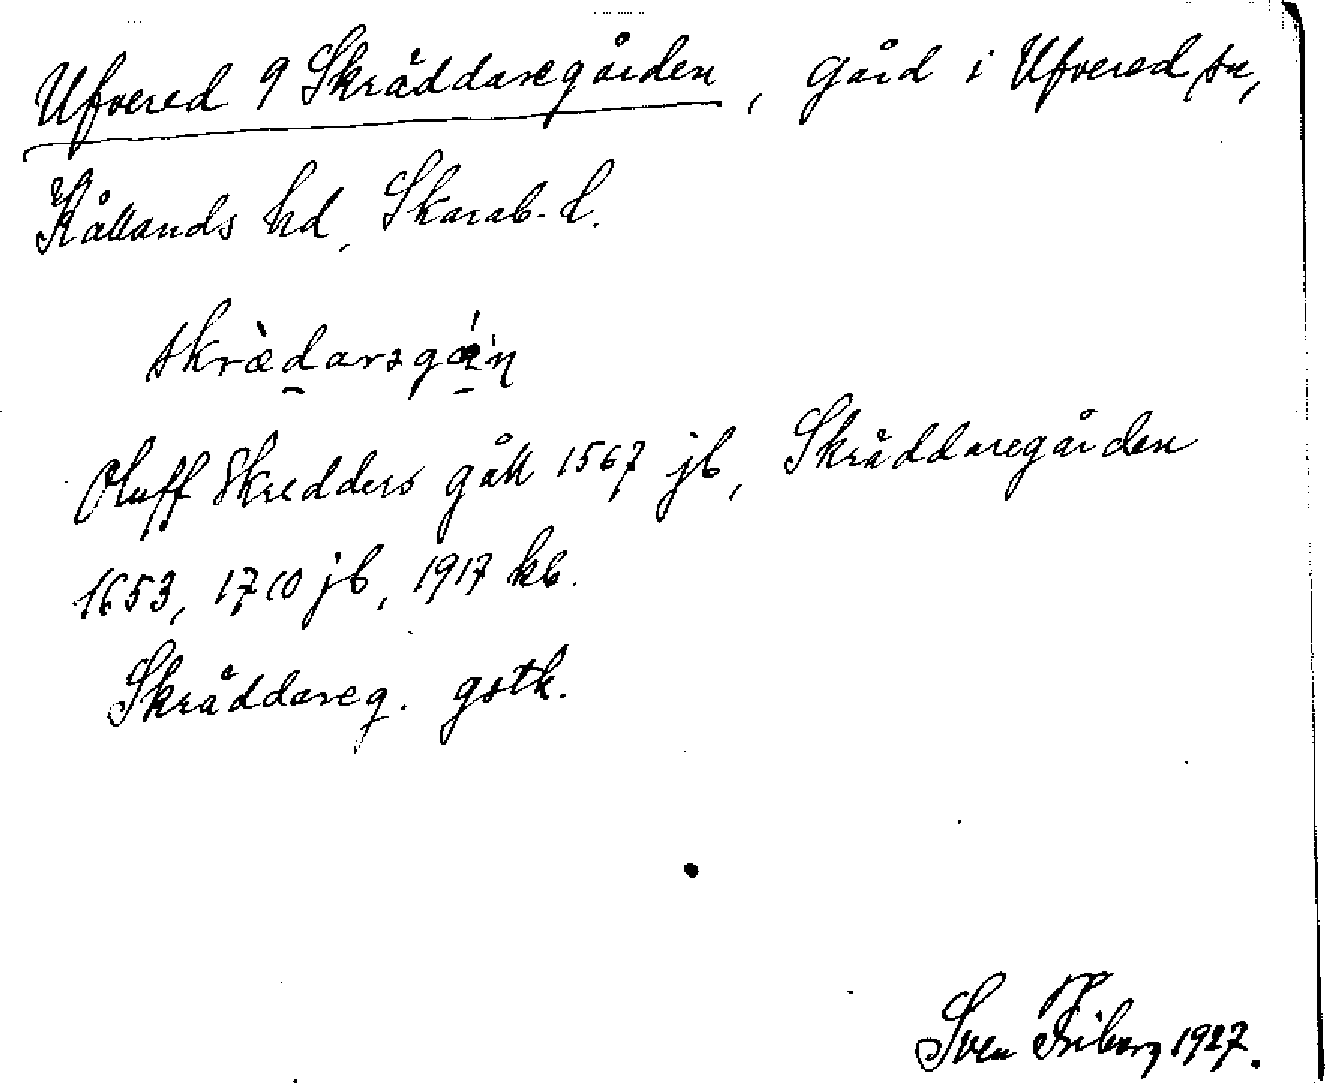 Ufvered 9 Skräddaregården, gård i Ufvered sn,
Kållands hd, Skarab. l.
skrædarsgá'n
Oluff Skredders gåll 1567 jb, Skräddaregården
1653, 1710 jb, 1917 kb.
Skräddareg. gstk.
Sven Friberg 1927.